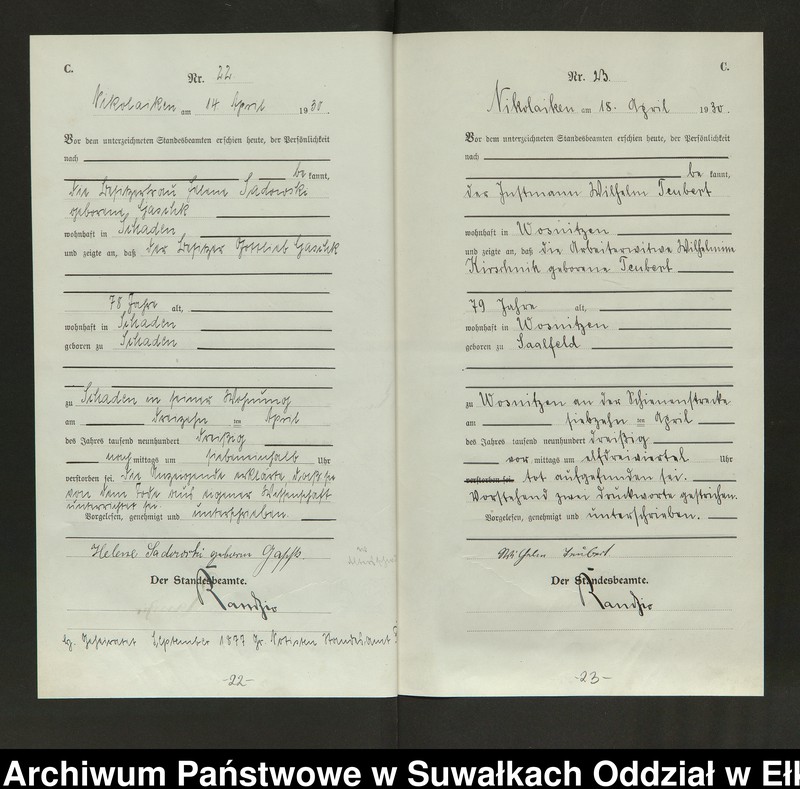 C.
Nr. 22
Nikolaiken am 14 April 1930.
Vor dem unterzeichneten Standesbeamten erschien heute, der Persönlichkeit
nach
be kannt,
die Besitzerfrau Helene Sadowski
geborene Gaschk
wohnhaft in Schaden
und zeigte an, daß der Besitzer Gottlieb Gaschk
78 Jahre alt,
wohnhaft in Schaden
geboren zu Schaden
zu Schaden in seiner Wohnung
am dreizehn ten April
des Jahres tausend neunhundert dreißig
nach mittags um siebeneinhalb Uhr
verstorben sei. Die Anzeigende erklärte daß sie
von dem Tode aus eigener Wissenschaft
unterrichtet sei.
Vorgelesen, genehmigt und unterschrieben.
Helene Sadowski geborene
Der Standesbeamte.
Randzio
September 1877
-22-
C.
Nr. 23.
Nikolaiken am 18. April 1930.
Vor dem unterzeichneten Standesbeamten erschien heute, der Persönlichkeit
nach
be kannt,
der Instmann Wilhelm Teubert
wohnhaft in Wosnitzen
und zeigte an, daß die Arbeiterwitwe Wilhelmine
Kirschnik geborene Teubert
79 Jahre alt,
wohnhaft in Wosnitzen
geboren zu Saalfeld
zu Wosnitzen an der Schienenstrecke
am siebzehn ten April
des Jahres tausend neunhundert dreißig
vor mittags um elfdreiviertel Uhr
verstorben sei. tot aufgefunden sei.
Vorstehend zwei Druckworte gestrichen.
Vorgelesen, genehmigt und unterschrieben.
Wilhelm Teubert
Der Standesbeamte.
Randzio
-23-
Archiwum Państwowe w Suwałkach Oddział w Ełk